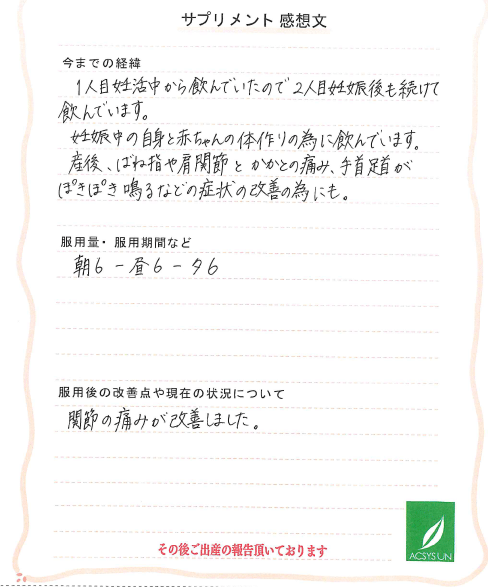 サプリメント 感想文
今までの経緯
1人目妊活中から飲んでいたので2人目妊娠後も続けて
飲んでいます。
妊娠中の自身と赤ちゃんの体作りの為に飲んでいます。
産後、ばね指や肩関節とかかとの痛み、手首足首が
ぽきぽき鳴るなどの症状の改善の為にも。
服用量・服用期間など
朝6-昼6-夕6
服用後の改善点や現在の状況について
関節の痛みが改善しました。
ACSYSUN
その後ご出産の報告頂いております